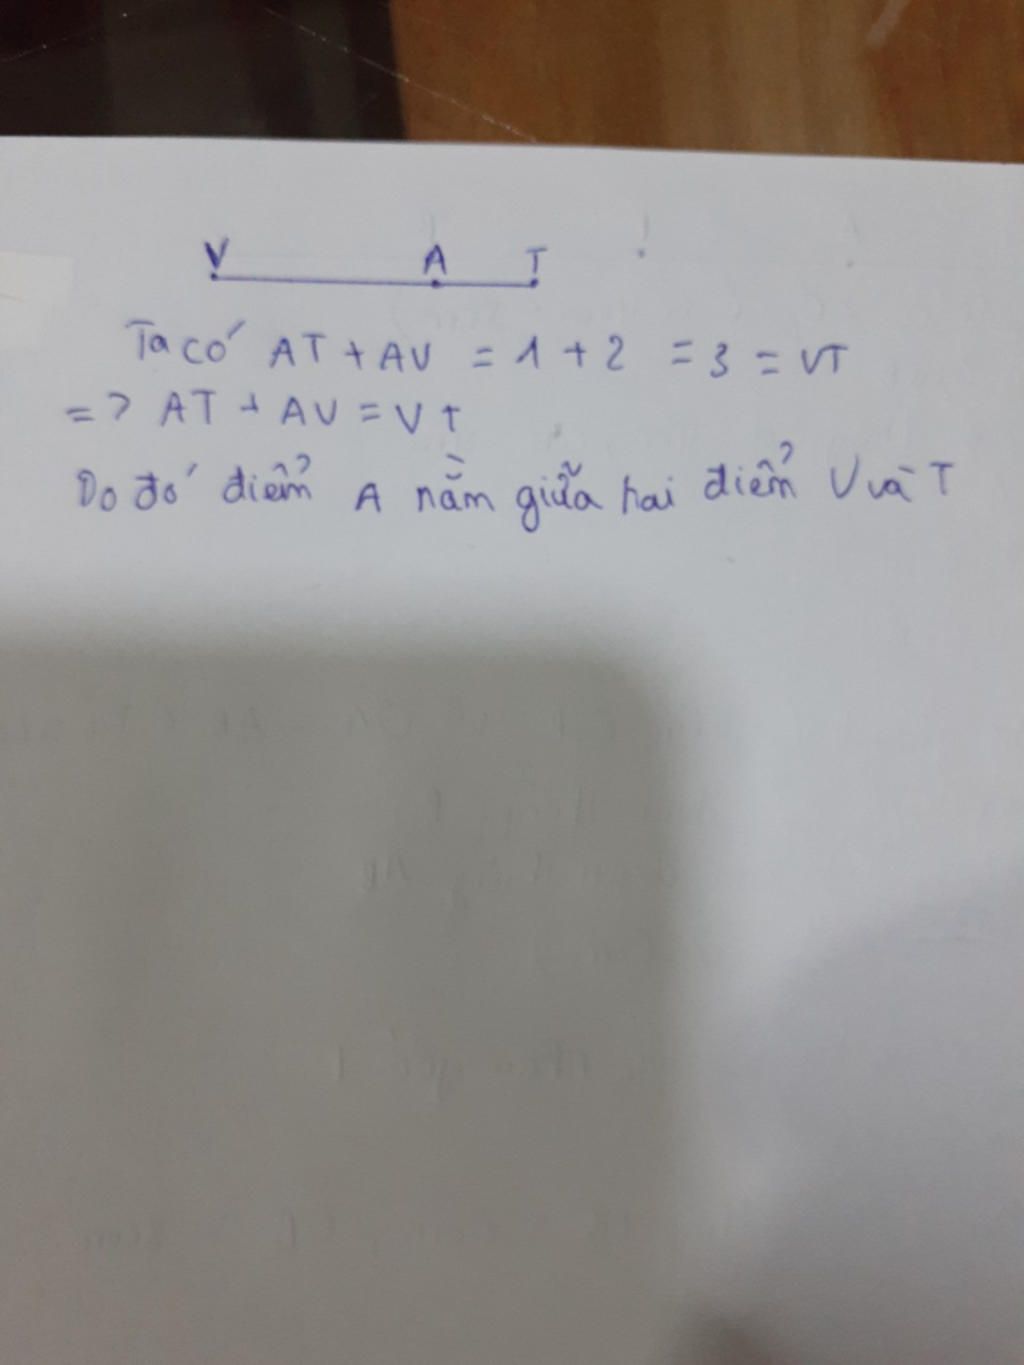 V A T
Ta có AT + AV = 1 + 2 = 3 = VT
=> AT + AV = VT
Do đó điểm A nằm giữa hai điểm V và T